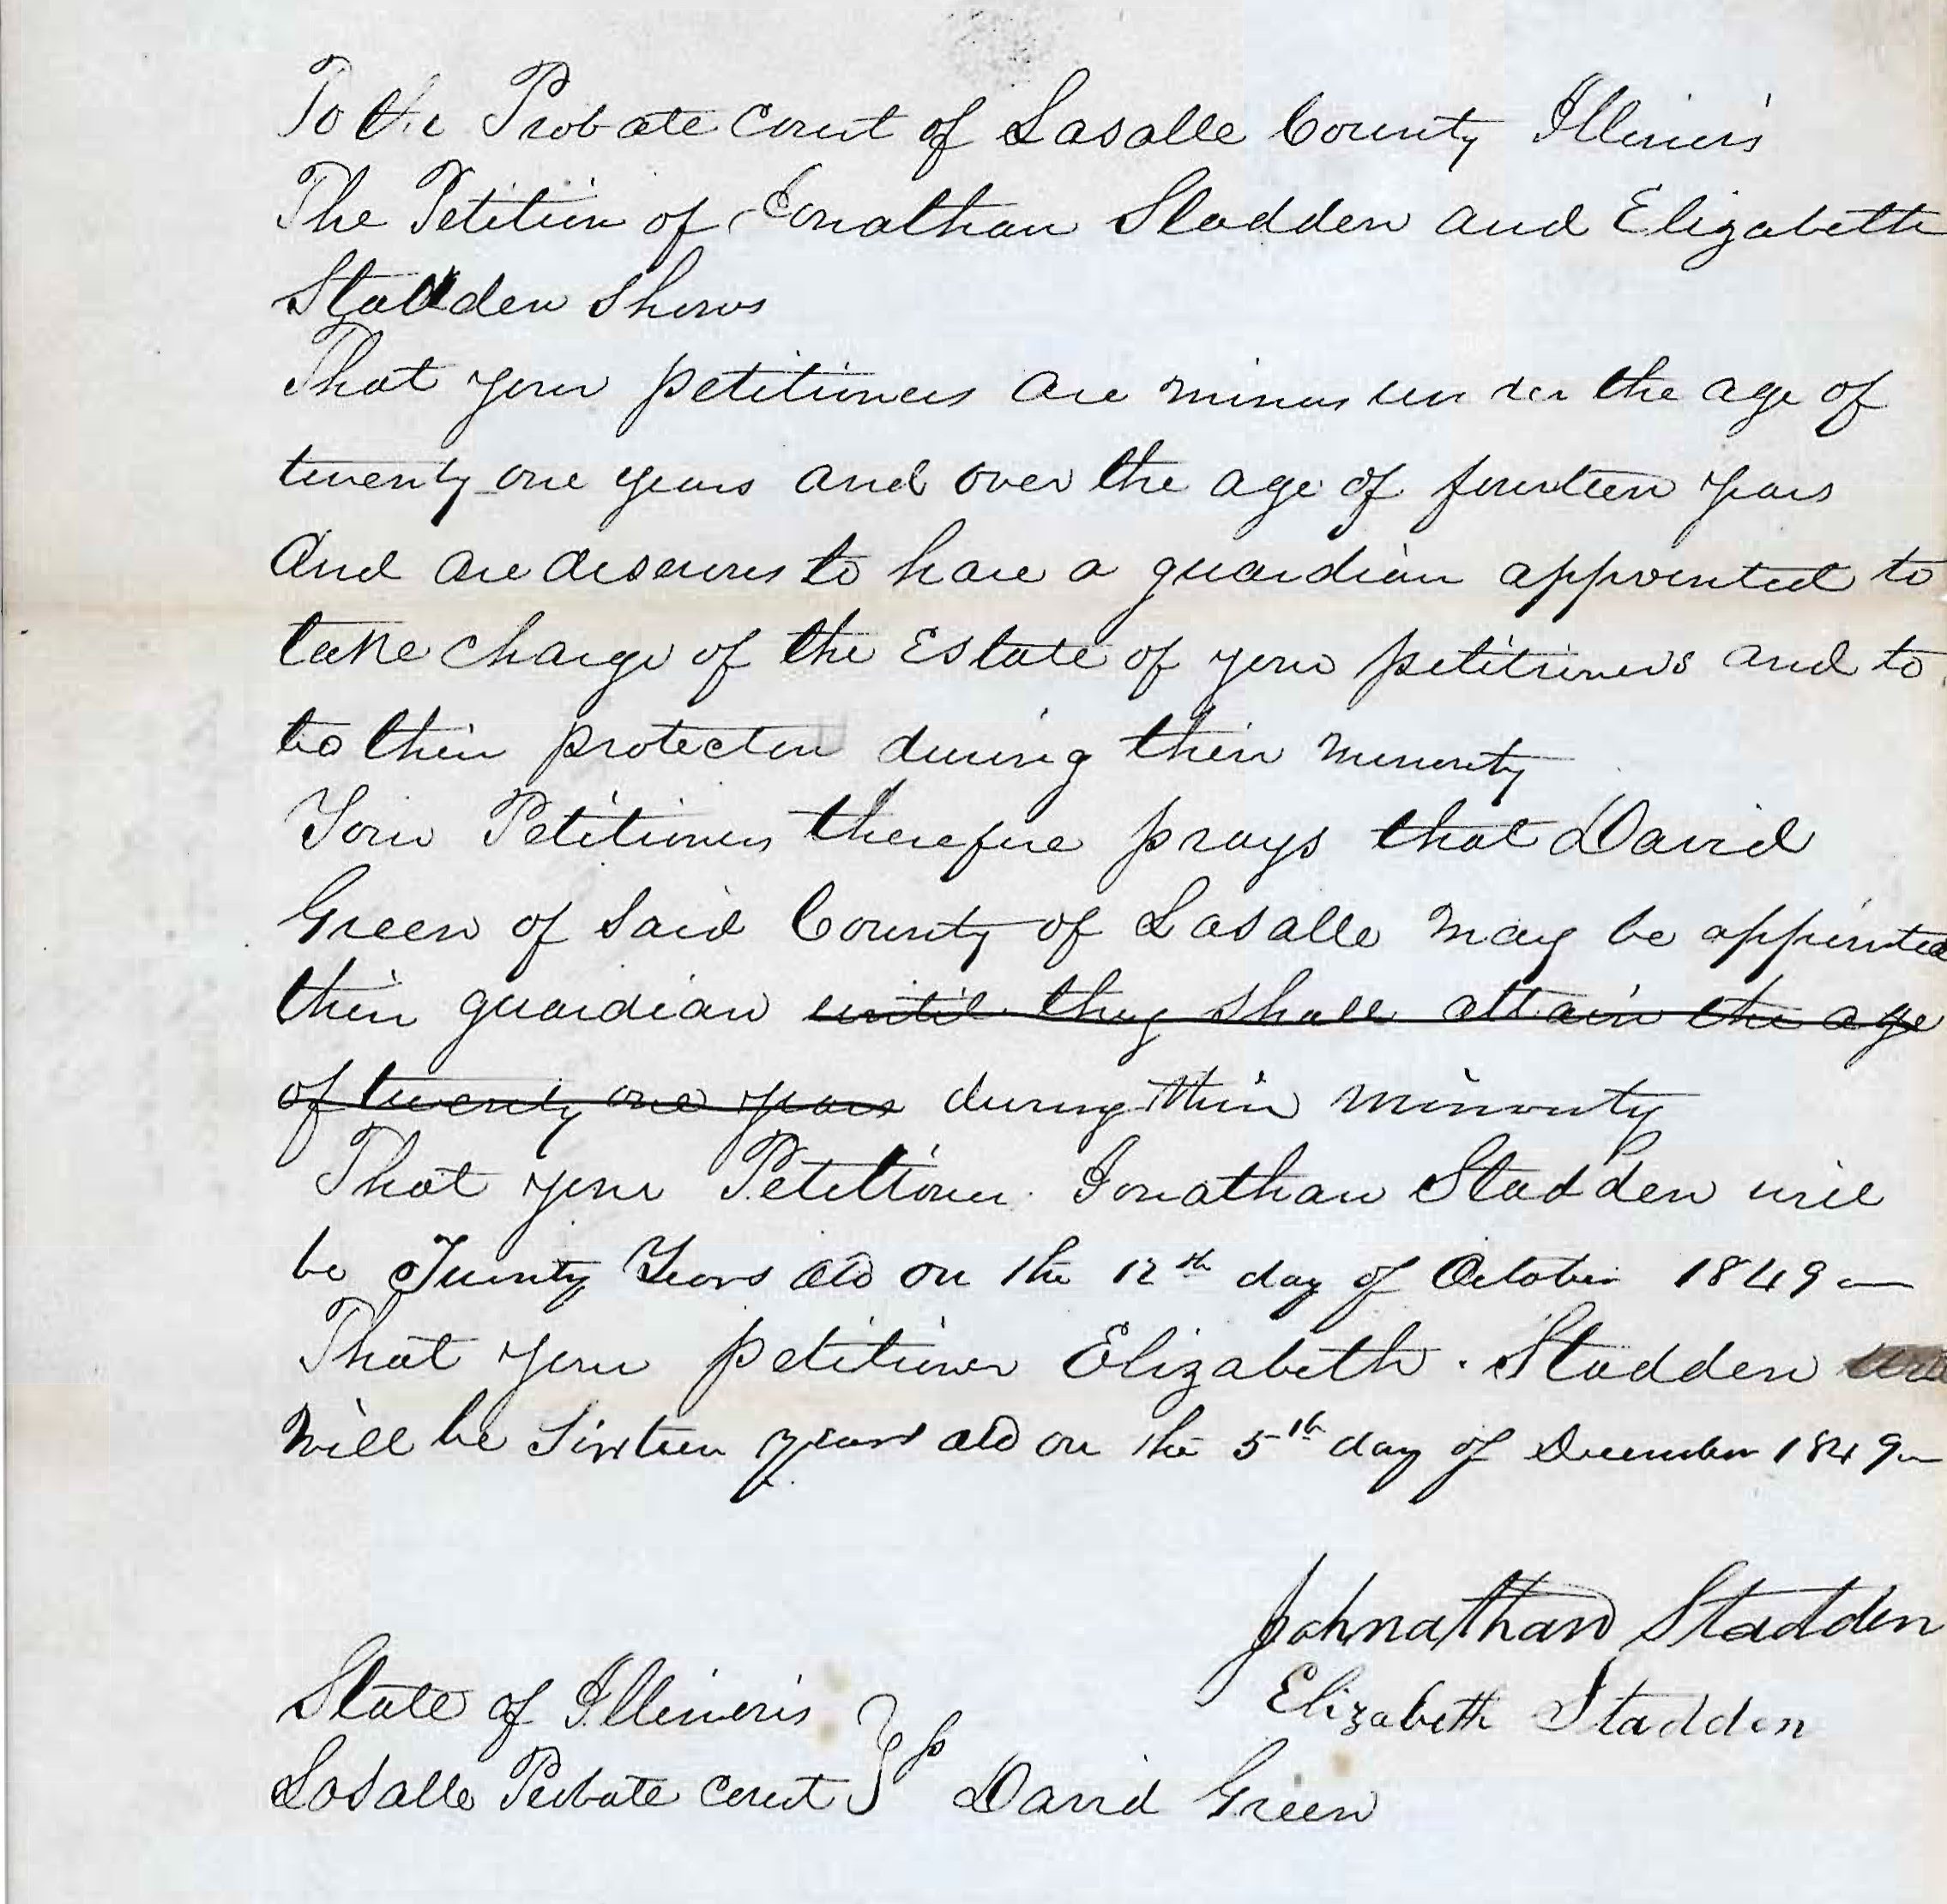 To the Probate Court of Lasalle County Illinois
The Petition of Jonathan Stadden and Elizabeth
Stadden shows
That your petitioners are minors under the age of
twenty-one years and over the age of fourteen years
And are desierous to have a guardian appointed to
take charge of the Estate of your petitioners and to
to their protecton during their minority
Your Petitioners therefore prays that David
Green of said County of Lasalle may be appointed
their guardian until they shall attain the age
of twenty one years during their minority
That your Petitioner Jonathan Stadden will
be Twenty Years old on the 12th day of October 1849
That your petitioner Elizabeth Stadden
Will be Sixteen years old on the 5th day of December 1849
Johnathan Stadden
Elizabeth Stadden
State of Illinois
Lasalle Probate Court } ss David Green